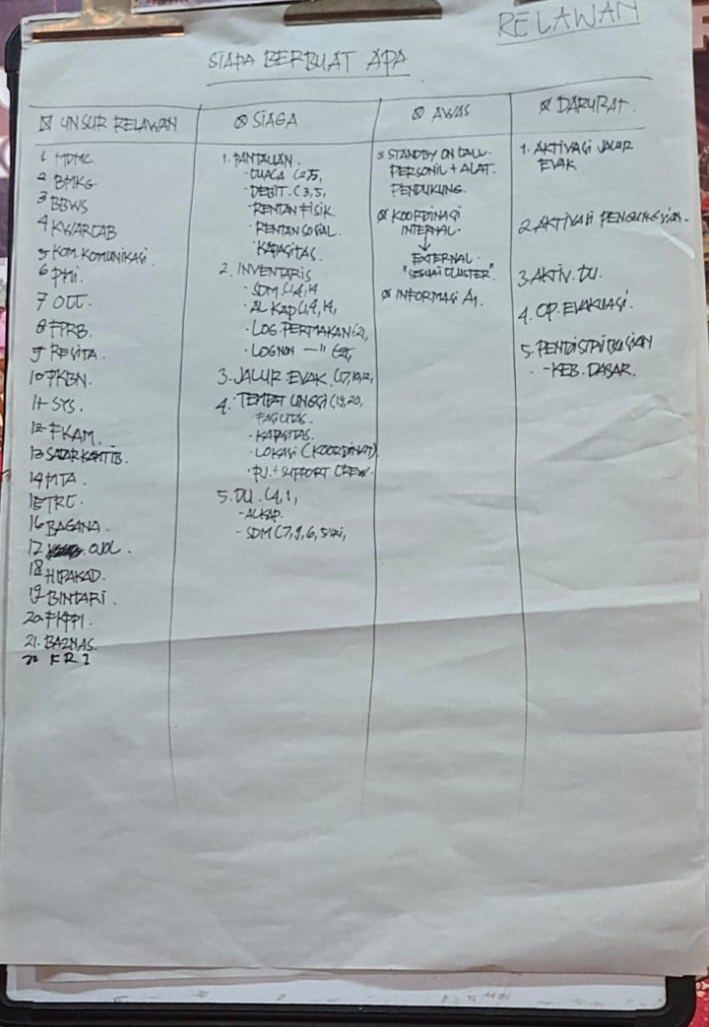 RELAWAN
SIAPA BERBUAT APA
UNSUR RELAWAN
1 MDMC
2 BMKG
3 BBWS
4 KWARCAB
5 KOM. KOMUNIKASI.
6 PMI.
7 OCC.
8 FPRB.
9 RESITA.
10 PKBN.
11 SYS.
12 FKAM.
13 SADARKAMTIB.
14 MTA.
15 TRC.
16 BAGANA.
17 OJOL.
18 HIPAKAD.
19 BINTARI.
20 FKPPI.
21. BAZNAS.
22 KRI
SIAGA
1. PANTAUAN.
· CUACA (2,5,
· DEBIT. (3,5,
· RENTAN FISIK.
· RENTAN SOSIAL.
· KAPASITAS.
2. INVENTARIS
· SDM
· ALKAP
· LOG. PERMAKAN
· LOGNON — "
3. JALUR EVAK.
4. TEMPAT UNGSI (19,20,
FASILITAS.
· KAPASITAS.
· LOKASI (KOORDINAT)
· PJ. + SUPPORT CREW.
5. DU. (4,1,
- ALKAP.
- SDM (7,9,6,
AWAS
STANDBY ON CALL.
PERSONIL + ALAT.
PENDUKUNG.
KOORDINASI
INTERNAL.
↓
EXTERNAL.
"SESUAI CLUSTER"
INFORMASI A1.
DARURAT.
1. AKTIVASI JALUR
EVAK
2. AKTIVASI PENGUNGSIAN.
3. AKTIV. DU.
4. OP. EVAKUASI.
5. PENDISTRIBUSIAN
- KEB. DASAR.